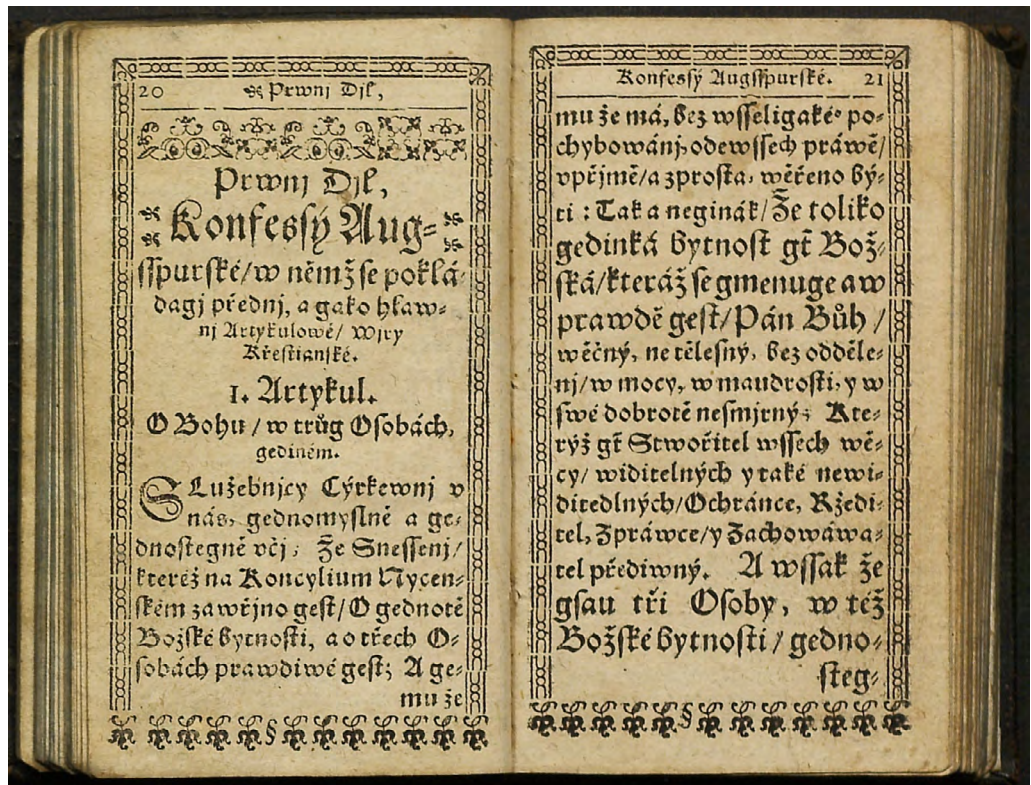 20 Prwnj Djl,
Prwnj Djl,
Konfessý Aug-
sspurské/ w němž se poklá-
dagj přednj, a gako hlaw-
nj Artykulowé/ Wjry
Křestianské.
I. Artykul.
O Bohu / w trůg Osobách,
gediném.
SLužebnjcy Cýrkewnj v
nás, gednomyslně a ge-
dnostegně včj, Že Snessenj/
kteréž na Koncylium Nycen-
ském zawřjno gest/ O gednotě
Božské bytnosti, a o třech O-
sobách prawdiwé gest; A ge-
mu že
Konfessý Augsspurské. 21
mu že má, bez wsseligaké° po-
chybowánj, odewssech práwě/
vpřjmě/ a zprosta, wěřeno bý-
ti : Tak a neginák/ Že toliko
gedinká bytnost gt̃ Bož-
ská/ kteráž se gmenuge a w
prawdě gest/ Pán Bůh /
wěčný, ne tělesný, bez odděle-
nj/ w mocy, w maudrosti, y w
swé dobrotě nesmjrný; Kte-
rýž gt̃ Stwořitel wssech wě-
cy/ widitelných y také newi-
ditedlných/ Ochránce, Ržedi-
tel, Zpráwce/ y Zachowáwa-
tel předjwný. A wssak že
gsau tři Osoby, w též
Božské bytnosti / gedno-
steg-